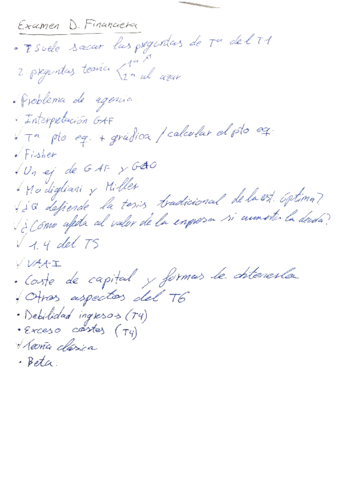 Examen D. Financiera
• Suele sacar las preguntas de Tª del T1
2 preguntas teoría 1ª
2ª al azar
• Problema de agencia
• Interpretación GAF
✓ Tª pto eq. + gráfica / calcular el pto eq.
✓ Fisher
✓ Un ej de GAF y GAO
✓ Modigliani y Miller
✓ ¿Q defiende la tesis tradicional de la est. óptima?
✓ ¿Cómo afecta al valor de la empresa si aumenta la deuda?
✓ 1.4 del T5
✓ VAN-I
• Coste de capital y formas de obtenerla
✓ Otros aspectos del T6
• Debilidad ingresos (T4)
• Exceso costes (T4)
✓ Teoría clásica
• Beta.